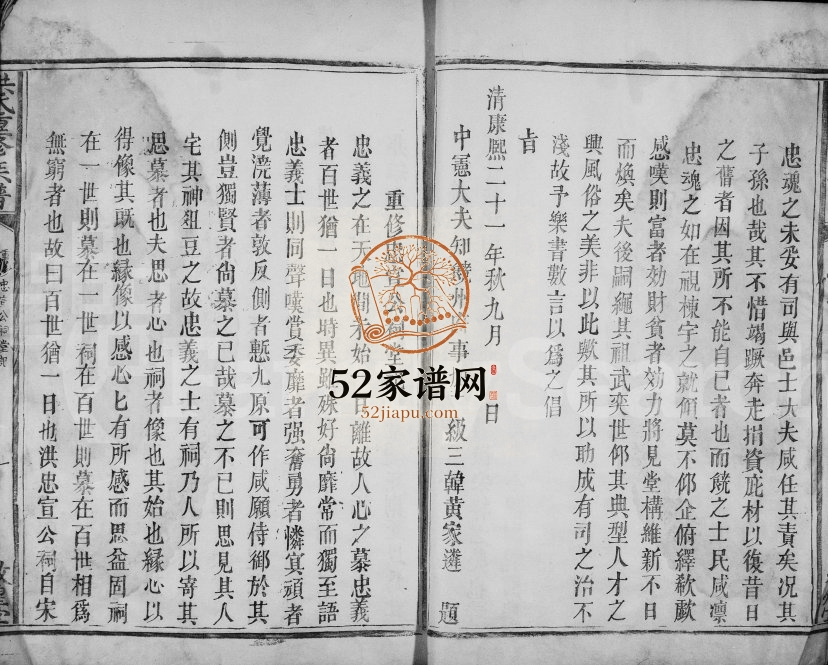 忠魂之未妥有司與邑士大夫咸任其責矣况其
子孫也哉其不惜竭蹶奔走捐資庇材以復昔日
之舊者因其所不能自已者也而饒之士民咸凛
忠魂之如在視棟宇之就傾莫不仰企俯繹欷歔
感嘆則富者効財貧者効力將見堂構維新不日
而煥矣夫後嗣繩其祖武奕世仰其典型人才之
興風俗之美非以此歟其所以助成有司之治不
淺故予樂書數言以爲之倡
旨
清康熙二十一年秋九月 日
中憲大夫知 州 事 級三韓黃家遴 題
重修忠宣公祠堂
忠義之在天地間未始 日離故人心之慕忠義
者百世猶一日也時異 殊好尙靡常而獨至語
忠義士則同聲嘆賞委靡者强奮勇者憐㝠頑者
覺澆薄者敦反側者慙九原可作咸願侍御於其
側豈獨賢者尙慕之已哉慕之不已則思見其人
宅其神俎豆之故忠義之士有祠乃人所以寄其
思慕者也夫思者心也祠者像也其始也緣心以
得像其旣也緣像以感心匕有所感而思益固祠
在一世則慕在一世祠在百世則慕在百世相爲
無窮者也故曰百世猶一日也洪忠宣公祠自宋
洪氏重修宗譜
忠宣公祠堂
一
52家谱网
52jiapu.com